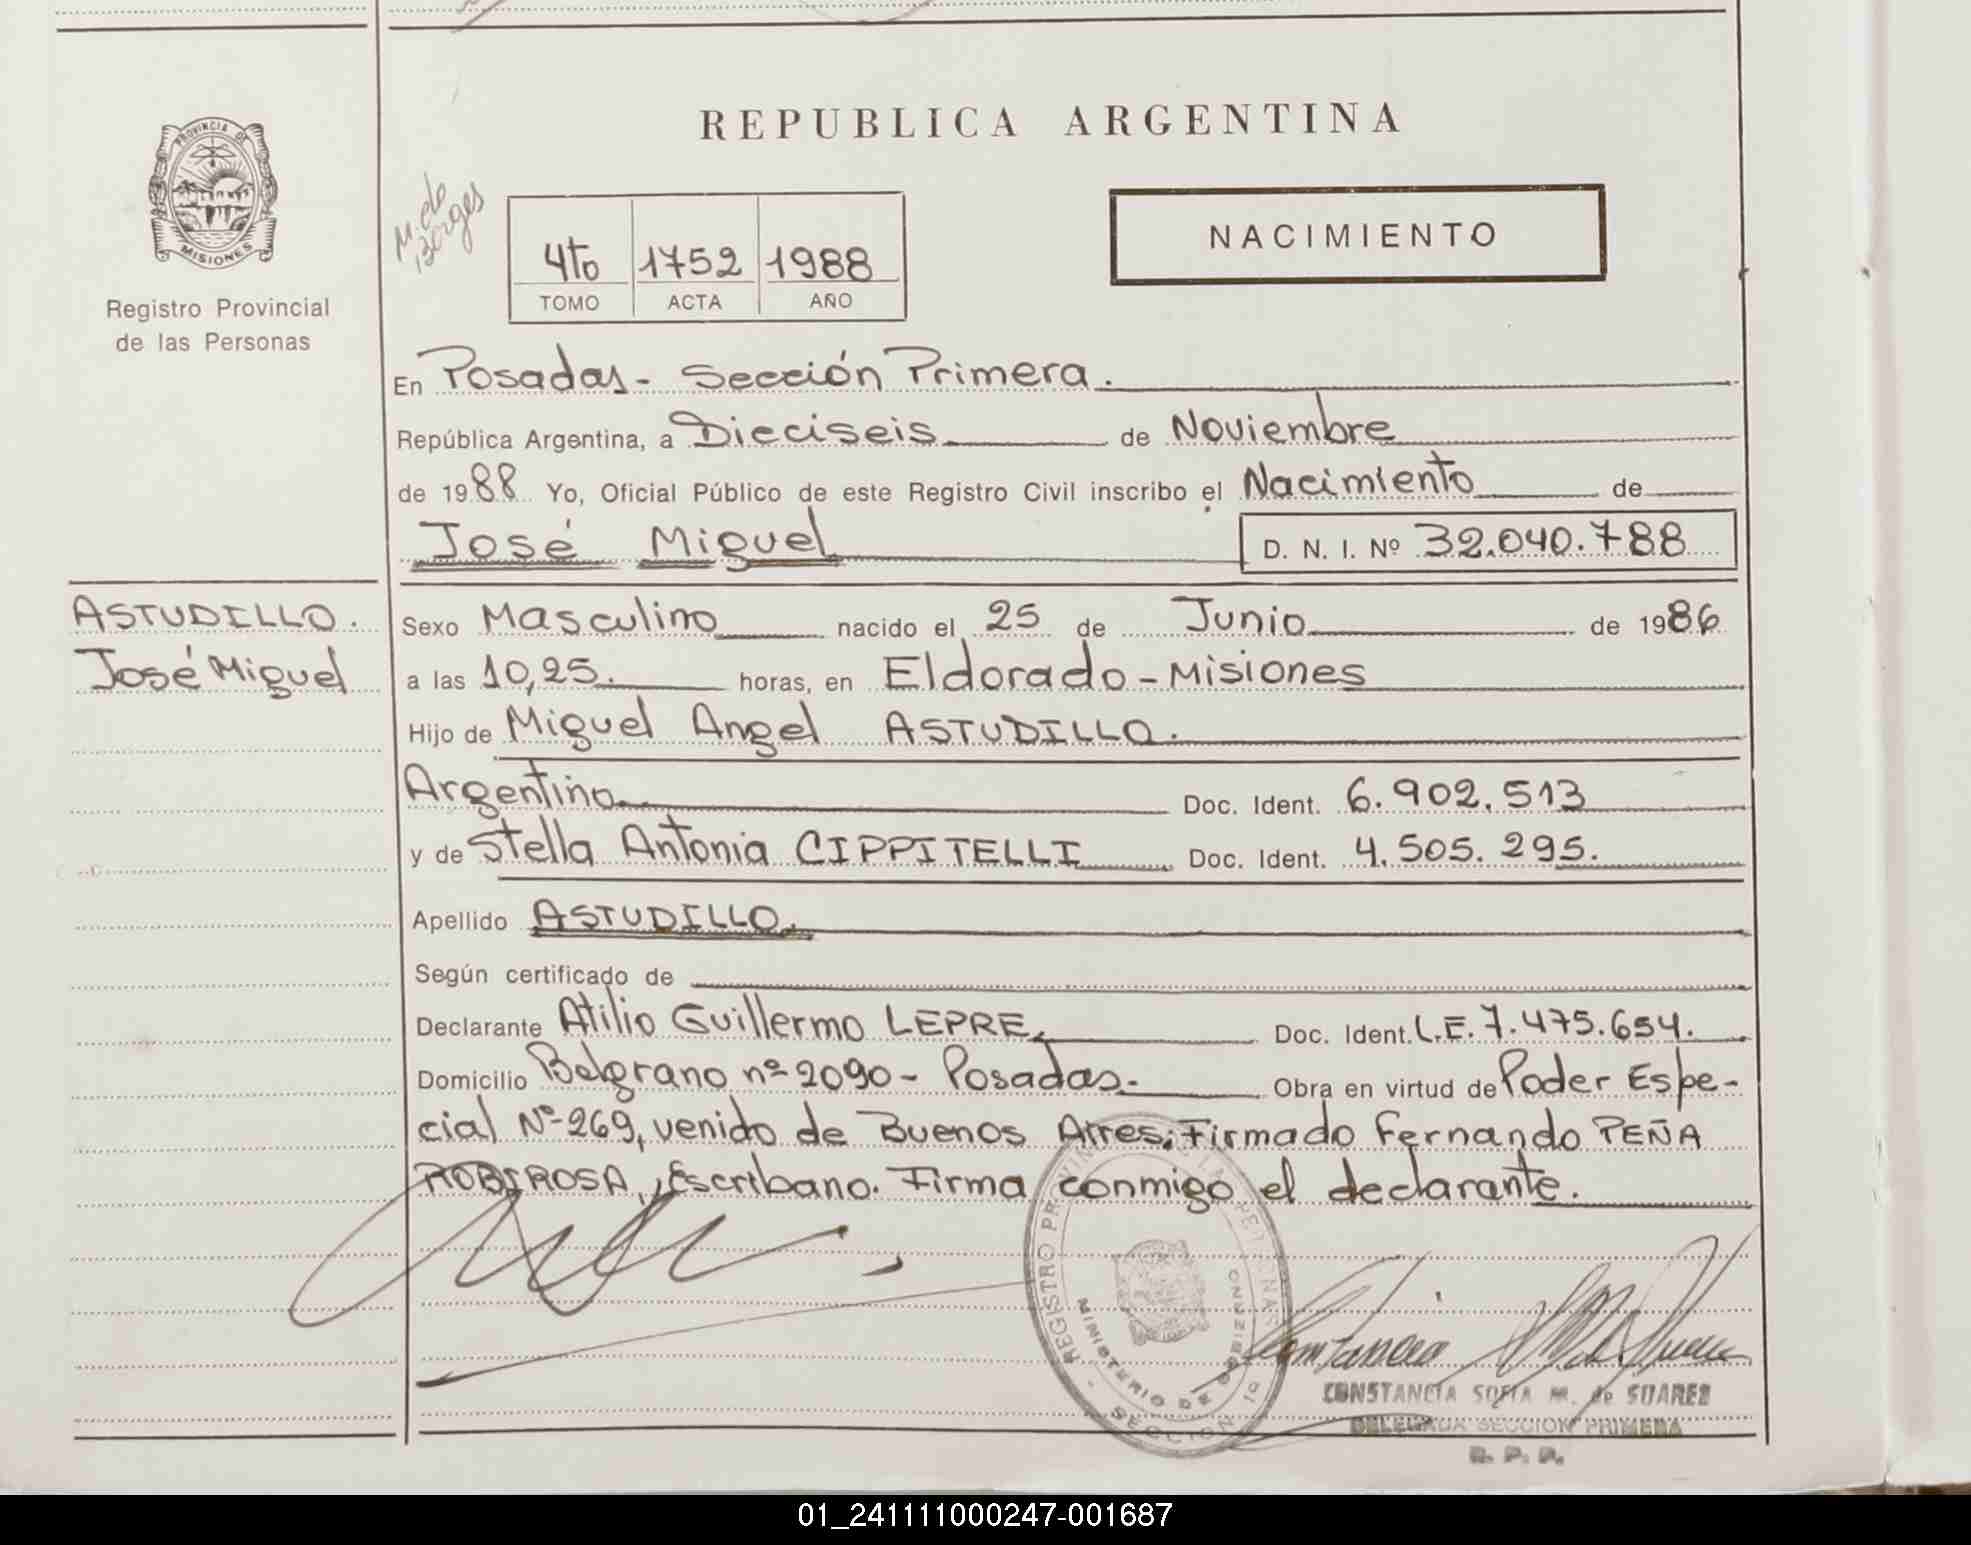 REPUBLICA ARGENTINA
PROVINCIA DE
MISIONES
Registro Provincial
de las Personas
M. de
Borges
4to 1752 1988
TOMO ACTA AÑO
NACIMIENTO
En Posadas - Sección Primera.
República Argentina, a Dieciseis de Noviembre
de 1988 Yo, Oficial Público de este Registro Civil inscribo el Nacimiento de
José Miguel D. N. I. Nº 32.040.788
ASTUDILLO.
José Miguel
Sexo Masculino nacido el 25 de Junio de 1986
a las 10,25. horas, en Eldorado - Misiones
Hijo de Miguel Angel ASTUDILLO.
Argentino Doc. Ident. 6.902.513
y de Stella Antonia CIPPITELLI Doc. Ident. 4.505.295.
Apellido ASTUDILLO.
Según certificado de
Declarante Atilio Guillermo LEPRE. Doc. Ident. L.E. 7.475.654.
Domicilio Belgrano nº 2090 - Posadas. Obra en virtud de Poder Espe-
cial Nº 269, venido de Buenos Aires; Firmado Fernando PEÑA
ROBIROSA, Escribano. Firma conmigo el declarante.
REGISTRO PROVINCIAL DE LAS PERSONAS
MINISTERIO DE GOBIERNO
SECCION 1º
CONSTANCIA SOFIA M. de SUAREZ
DELEGADA SECCION PRIMERA
R. P. P.
01_241111000247-001687